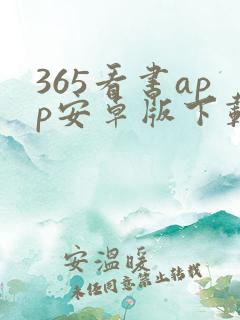 365看书ap
p安卓版下载
安温暖
未经同意禁止转载